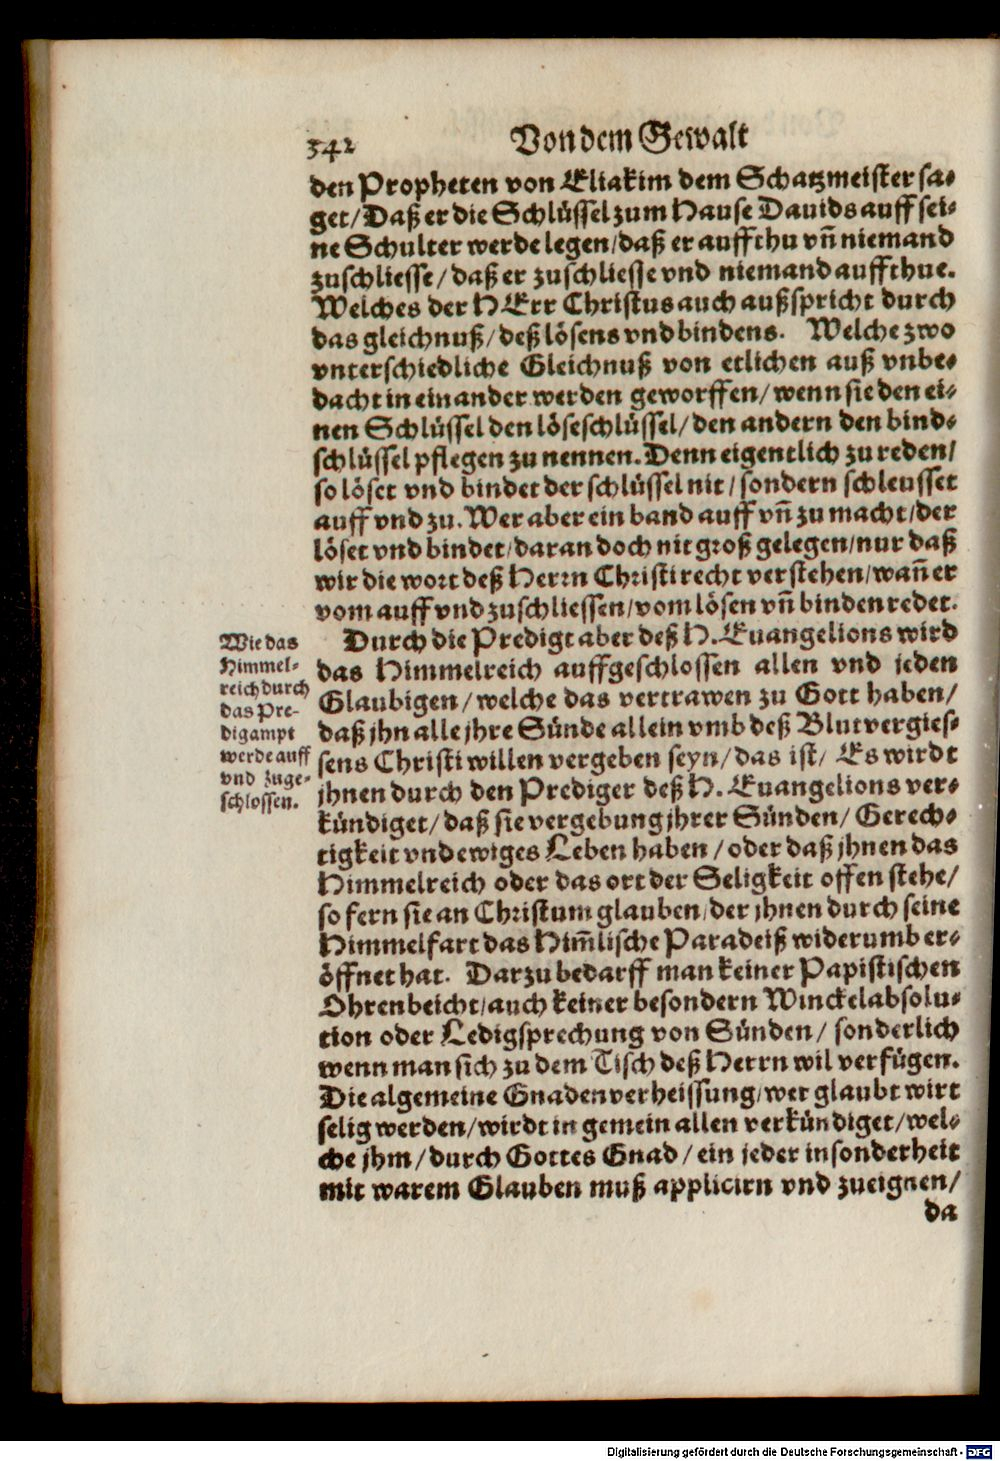 342 Von dem Gewalt
den Propheten von Eliakim dem Schatzmeister sa-
get/ Daß er die Schlüssel zum Hause Dauids auff sei-
ne Schulter werde legen/ daß er auffthu vñ niemand
zuschliesse/ daß er zuschliesse vnd niemand auffthue.
Welches der HErr Christus auch außspricht durch
das gleichnuß/ deß lösens vnd bindens. Welche zwo
vnterschiedliche Gleichnuß von etlichen auß vnbe-
dacht in einander werden geworffen/ wenn sie den ei-
nen Schlüssel den löseschlüssel/ den andern den bind-
schlüssel pflegen zu nennen. Denn eigentlich zu reden/
so löset vnd bindet der schlüssel nit/ sondern schleusset
auff vnd zu. Wer aber ein band auff vñ zu macht/ der
löset vnd bindet/ daran doch nit groß gelegen/ nur daß
wir die wort deß Herrn Christi recht verstehen/ wañ er
vom auff vnd zuschliessen/ vom lösen vñ binden redet.
Wie das
Himmel-
reich durch
das Pre-
digampt
werde auff
vnd zuge-
schlossen.
Durch die Predigt aber deß H. Euangelions wird
das Himmelreich auffgeschlossen allen vnd jeden
Glaubigen/ welche das vertrawen zu Gott haben/
daß jhn alle jhre Sünde allein vmb deß Blutvergies-
sens Christi willen vergeben seyn/ das ist/ Es wirdt
jhnen durch den Prediger deß H. Euangelions ver-
kündiget/ daß sie vergebung jhrer Sünden/ Gerech-
tigkeit vnd ewiges Leben haben/ oder daß jhnen das
Himmelreich oder das ort der Seligkeit offen stehe/
so fern sie an Christum glauben/ der jhnen durch seine
Himmelfart das Him̃lische Paradeiß widerumb er-
öffnet hat. Darzu bedarff man keiner Papistischen
Ohrenbeicht/ auch keiner besondern Winckelabsolu-
tion oder Ledigsprechung von Sünden/ sonderlich
wenn man sich zu dem Tisch deß Herrn wil verfügen.
Die algemeine Gnadenverheissung/ wer glaubt wirt
selig werden/ wirdt in gemein allen verkündiget/ wel-
che jhm/ durch Gottes Gnad/ ein jeder insonderheit
mit warem Glauben muß applicirn vnd zueignen/
da
Digitalisierung gefördert durch die Deutsche Forschungsgemeinschaft - DFG